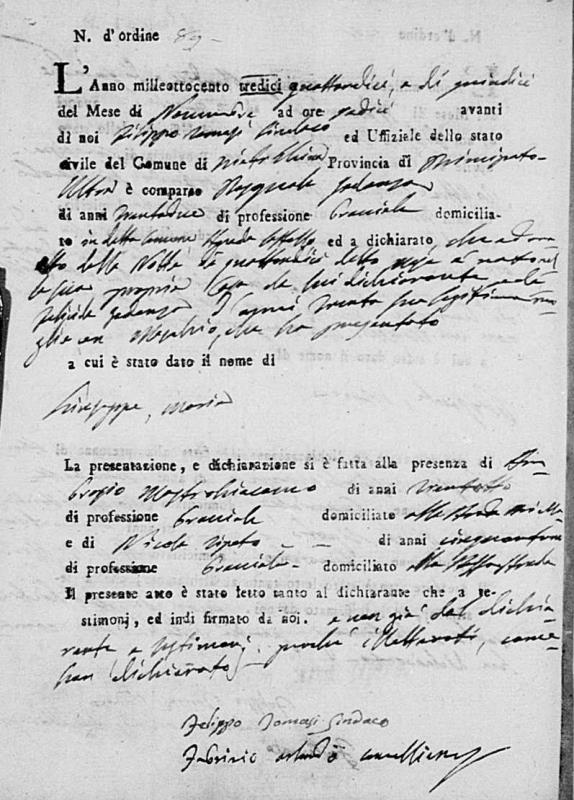 N. d'ordine 89
L'Anno milleottocento tredici quattordici, e di quindici
del Mese di Novembre ad ore sedici avanti
di noi Filippo Tomasi Sindaco ed Uffiziale dello stato
civile del Comune di Pietrelcina Provincia di Principato
Ultra è comparso Pasquale
di anni trentadue di professione Bracciale domicilia-
to in detto Comune Strada ed a dichiarato, che ad ore
otto della Notte de quattordici detto mese è nato nel
la sua propria Casa da lui dichiarante, e da
d'anni trenta sua legittima mo-
glie un Maschio, che ha presentato
a cui è stato dato il nome di
Giuseppe, Maria
La presentazione, e dichiarazione si è fatta alla presenza di Am-
brogio Mastrogiacomo di anni trentotto
di professione Bracciale domiciliato alla strada
e di Nicola di anni
di professione Bracciale domiciliato alla
Il presente atto è stato letto tanto al dichiarante che a te-
stimonj, ed indi firmato da noi. e non già dal dichia-
rante e testimonj perche illetterati, come
han dichiarato
Filippo Tomasi Sindaco
Fabrizio Orlando Cancelliere